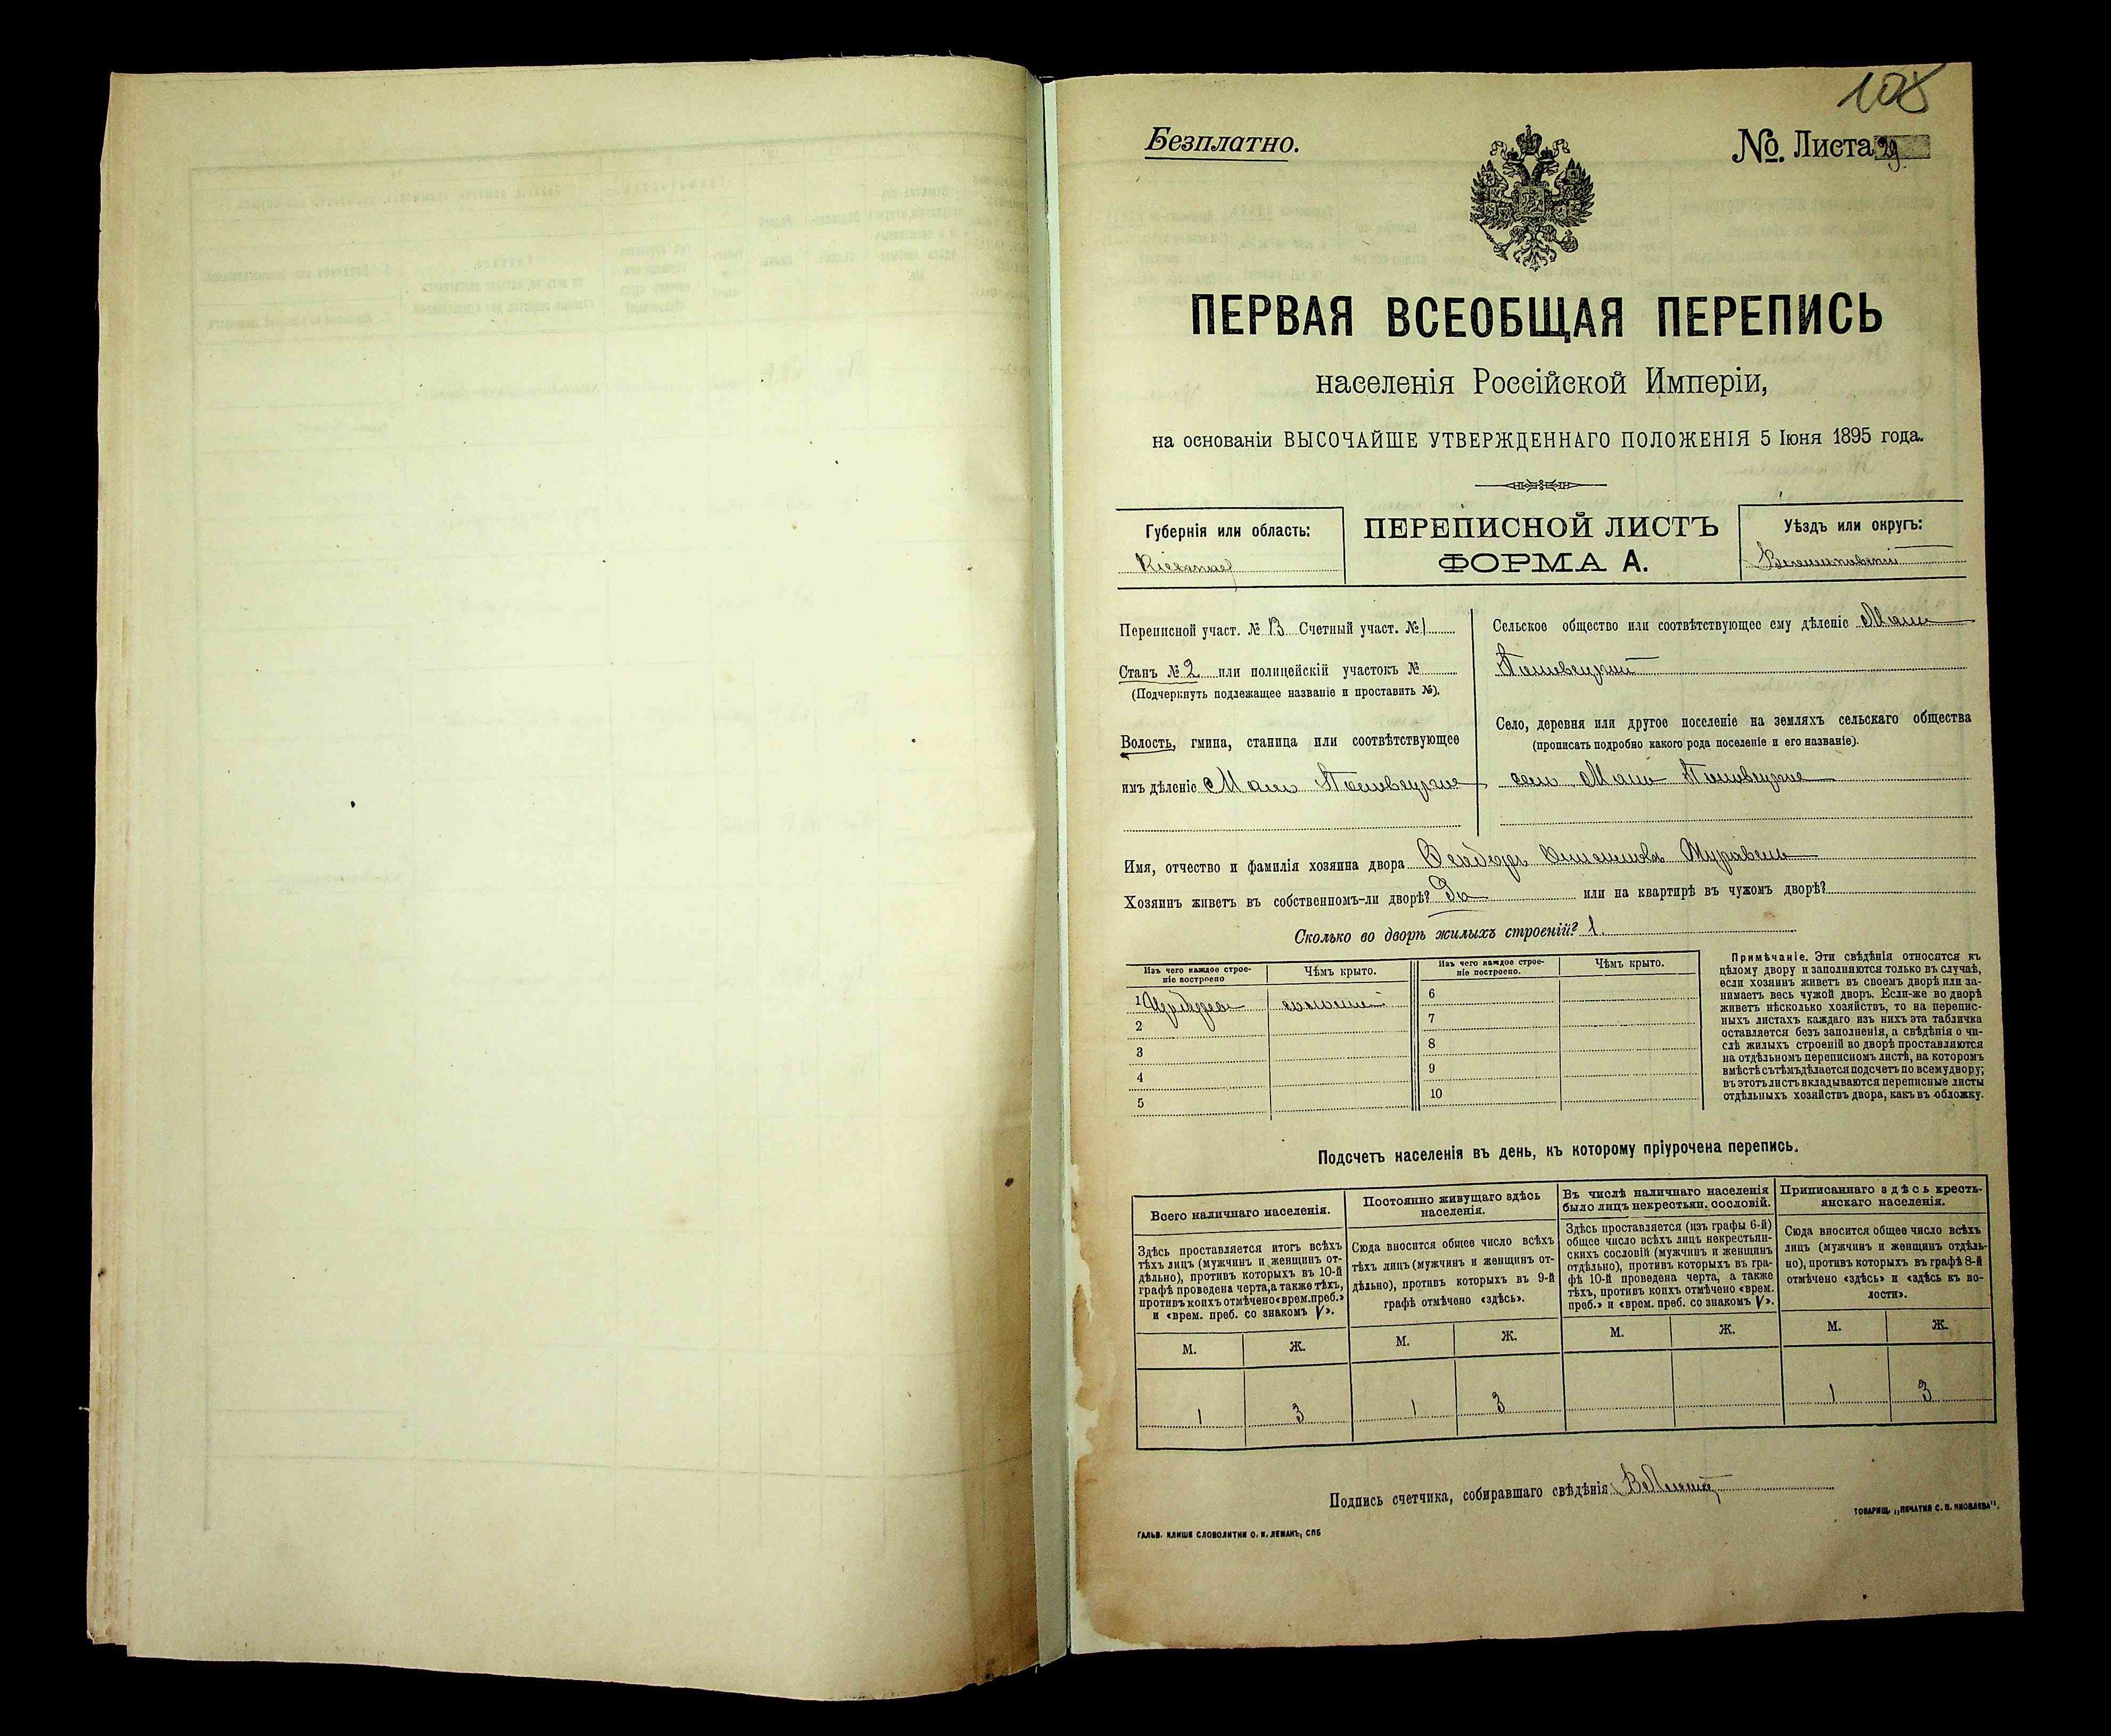 108
Безплатно.
№. Листа 29
ПЕРВАЯ ВСЕОБЩАЯ ПЕРЕПИСЬ
населенія Россійской Имперіи,
на основаніи ВЫСОЧАЙШЕ УТВЕРЖДЕННАГО ПОЛОЖЕНІЯ 5 Іюня 1895 года.
Губернія или область:
ПЕРЕПИСНОЙ ЛИСТЪ
ФОРМА А.
Уѣздъ или округъ:
Переписной участ. № 13 Счетный участ. № 1
Станъ № 2 или полицейскій участокъ №
(Подчеркнуть подлежащее названіе и проставить №).
Волость, гмина, станица или соотвѣтствующее
имъ дѣленіе Мало
Сельское общество или соотвѣтствующее ему дѣленіе Мало
Село, деревня или другое поселеніе на земляхъ сельскаго общества
(прописать подробно какого рода поселеніе и его названіе).
село Мало
Имя, отчество и фамилія хозяина двора
Хозяинъ живетъ въ собственномъ-ли дворѣ? Да или на квартирѣ въ чужомъ дворѣ?
Сколько во дворѣ жилыхъ строеній? 1
Изъ чего каждое строе-
ніе построено
Чѣмъ крыто.
Изъ чего каждое строе-
ніе построено.
Чѣмъ крыто.
1 соломой
2
3
4
5
6
7
8
9
10
Примѣчаніе. Эти свѣдѣнія относятся къ
цѣлому двору и заполняются только въ случаѣ,
если хозяинъ живетъ въ своемъ дворѣ или за-
нимаетъ весь чужой дворъ. Если-же во дворѣ
живетъ нѣсколько хозяйствъ, то на перепис-
ныхъ листахъ каждаго изъ нихъ эта табличка
оставляется безъ заполненія, а свѣдѣнія о чи-
слѣ жилыхъ строеній во дворѣ проставляются
на отдѣльномъ переписномъ листѣ, на которомъ
вмѣстѣ съ тѣмъ дѣлается подсчетъ по всему двору;
въ этотъ листъ вкладываются переписные листы
отдѣльныхъ хозяйствъ двора, какъ въ обложку.
Подсчетъ населенія въ день, къ которому пріурочена перепись.
Всего наличнаго населенія.
Здѣсь проставляется итогъ всѣхъ
тѣхъ лицъ (мужчинъ и женщинъ от-
дѣльно), противъ которыхъ въ 10-й
графѣ проведена черта, а также тѣхъ,
противъ коихъ отмѣчено «врем. преб.»
и «врем. преб. со знакомъ V».
Постоянно живущаго здѣсь
населенія.
Сюда вносится общее число всѣхъ
тѣхъ лицъ (мужчинъ и женщинъ от-
дѣльно), противъ которыхъ въ 9-й
графѣ отмѣчено «здѣсь».
Въ числѣ наличнаго населенія
было лицъ некрестьян. сословій.
Здѣсь проставляется (изъ графы 6-й)
общее число всѣхъ лицъ некрестьян-
скихъ сословій (мужчинъ и женщинъ
отдѣльно), противъ которыхъ въ гра-
фѣ 10-й проведена черта, а также
тѣхъ, противъ коихъ отмѣчено «врем.
преб.» и «врем. преб. со знакомъ V».
Приписаннаго здѣсь кресть-
янскаго населенія.
Сюда вносится общее число всѣхъ
лицъ (мужчинъ и женщинъ отдѣль-
но), противъ которыхъ въ графѣ 8-й
отмѣчено «здѣсь» и «здѣсь къ во-
лости».
М. Ж. М. Ж. М. Ж. М. Ж.
1 3 1 3 1 3
Подпись счетчика, собиравшаго свѣдѣнія
ГАЛЬВ. КЛИШЕ СЛОВОЛИТНИ О. И. ЛЕМАНЪ, СПБ
ТОВАРИЩ. „ПЕЧАТНЯ С. П. ЯКОВЛЕВА".